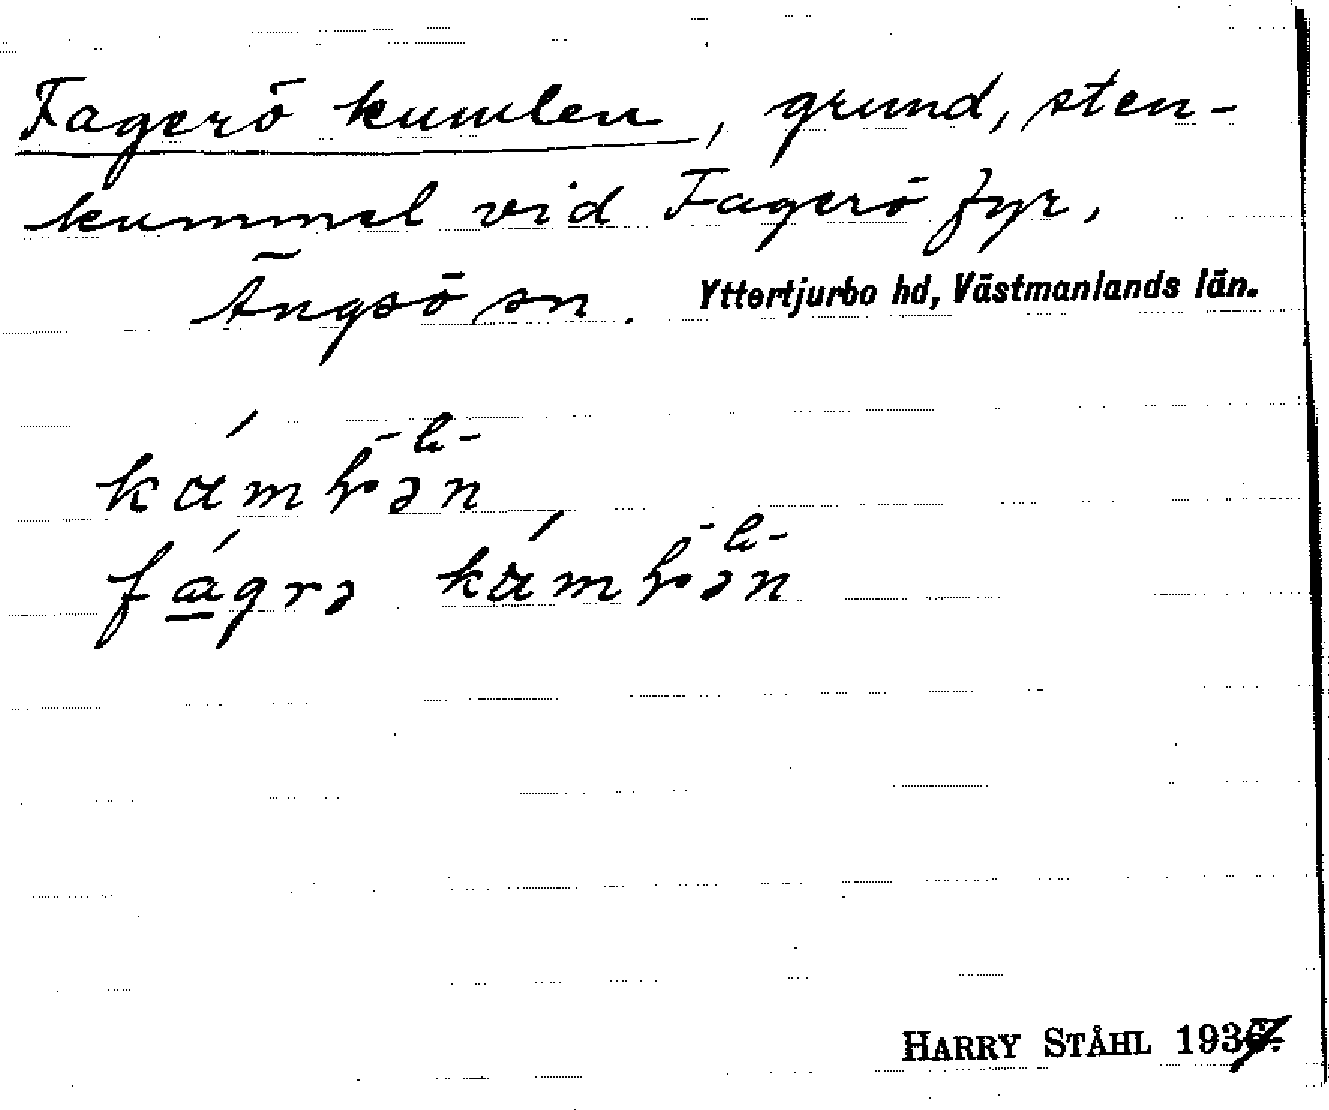 Fagerö kumlen, grund, sten-
kummel vid Fagerö fyr,
Ängsö sn. Yttertjurbo hd, Västmanlands län.
-l-
-l-
HARRY STÅHL 1937